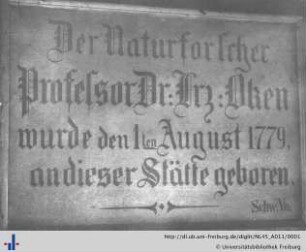 Der Naturforscher
Professor Dr: Lrz: Oken
wurde den 1ten August 1779.
an dieser Stätte geboren.
Schw. Ver.
http://dl.ub.uni-freiburg.de/diglit/NL45_A011/0001
© Universitätsbibliothek Freiburg